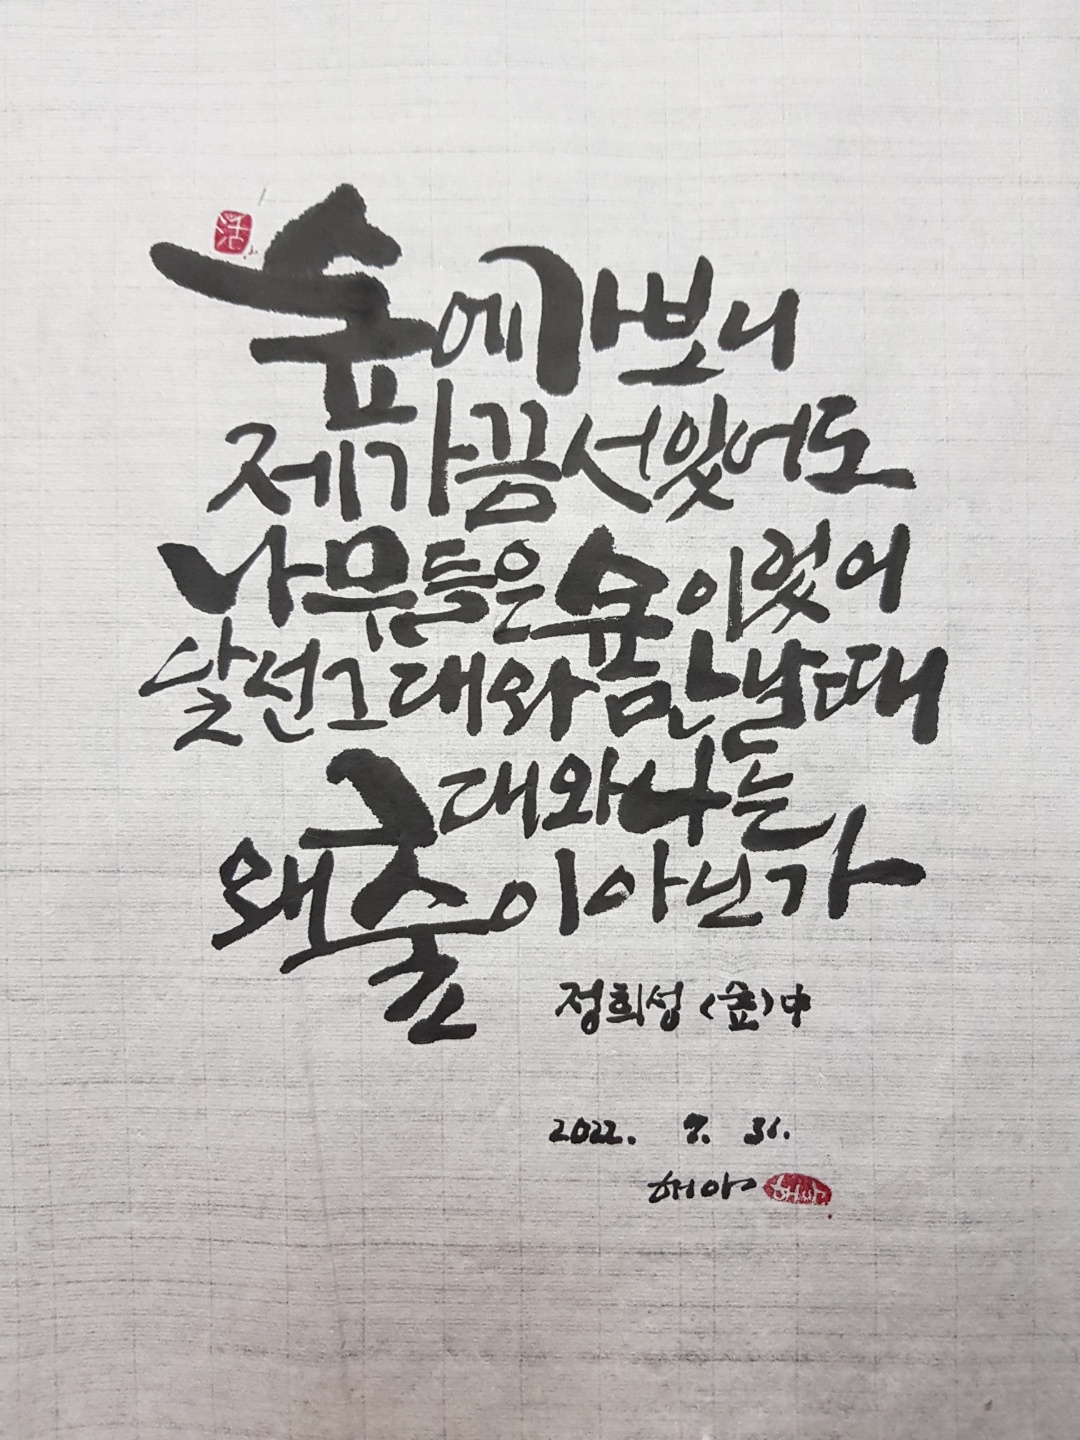 活
숲에 가보니
제가끔 서 있어도
나무들은 숲이었어
낯선 그대와 만날 때
그대와 나는
왜 숲이 아닌가
정희성 <숲> 中
2022. 7. 31.